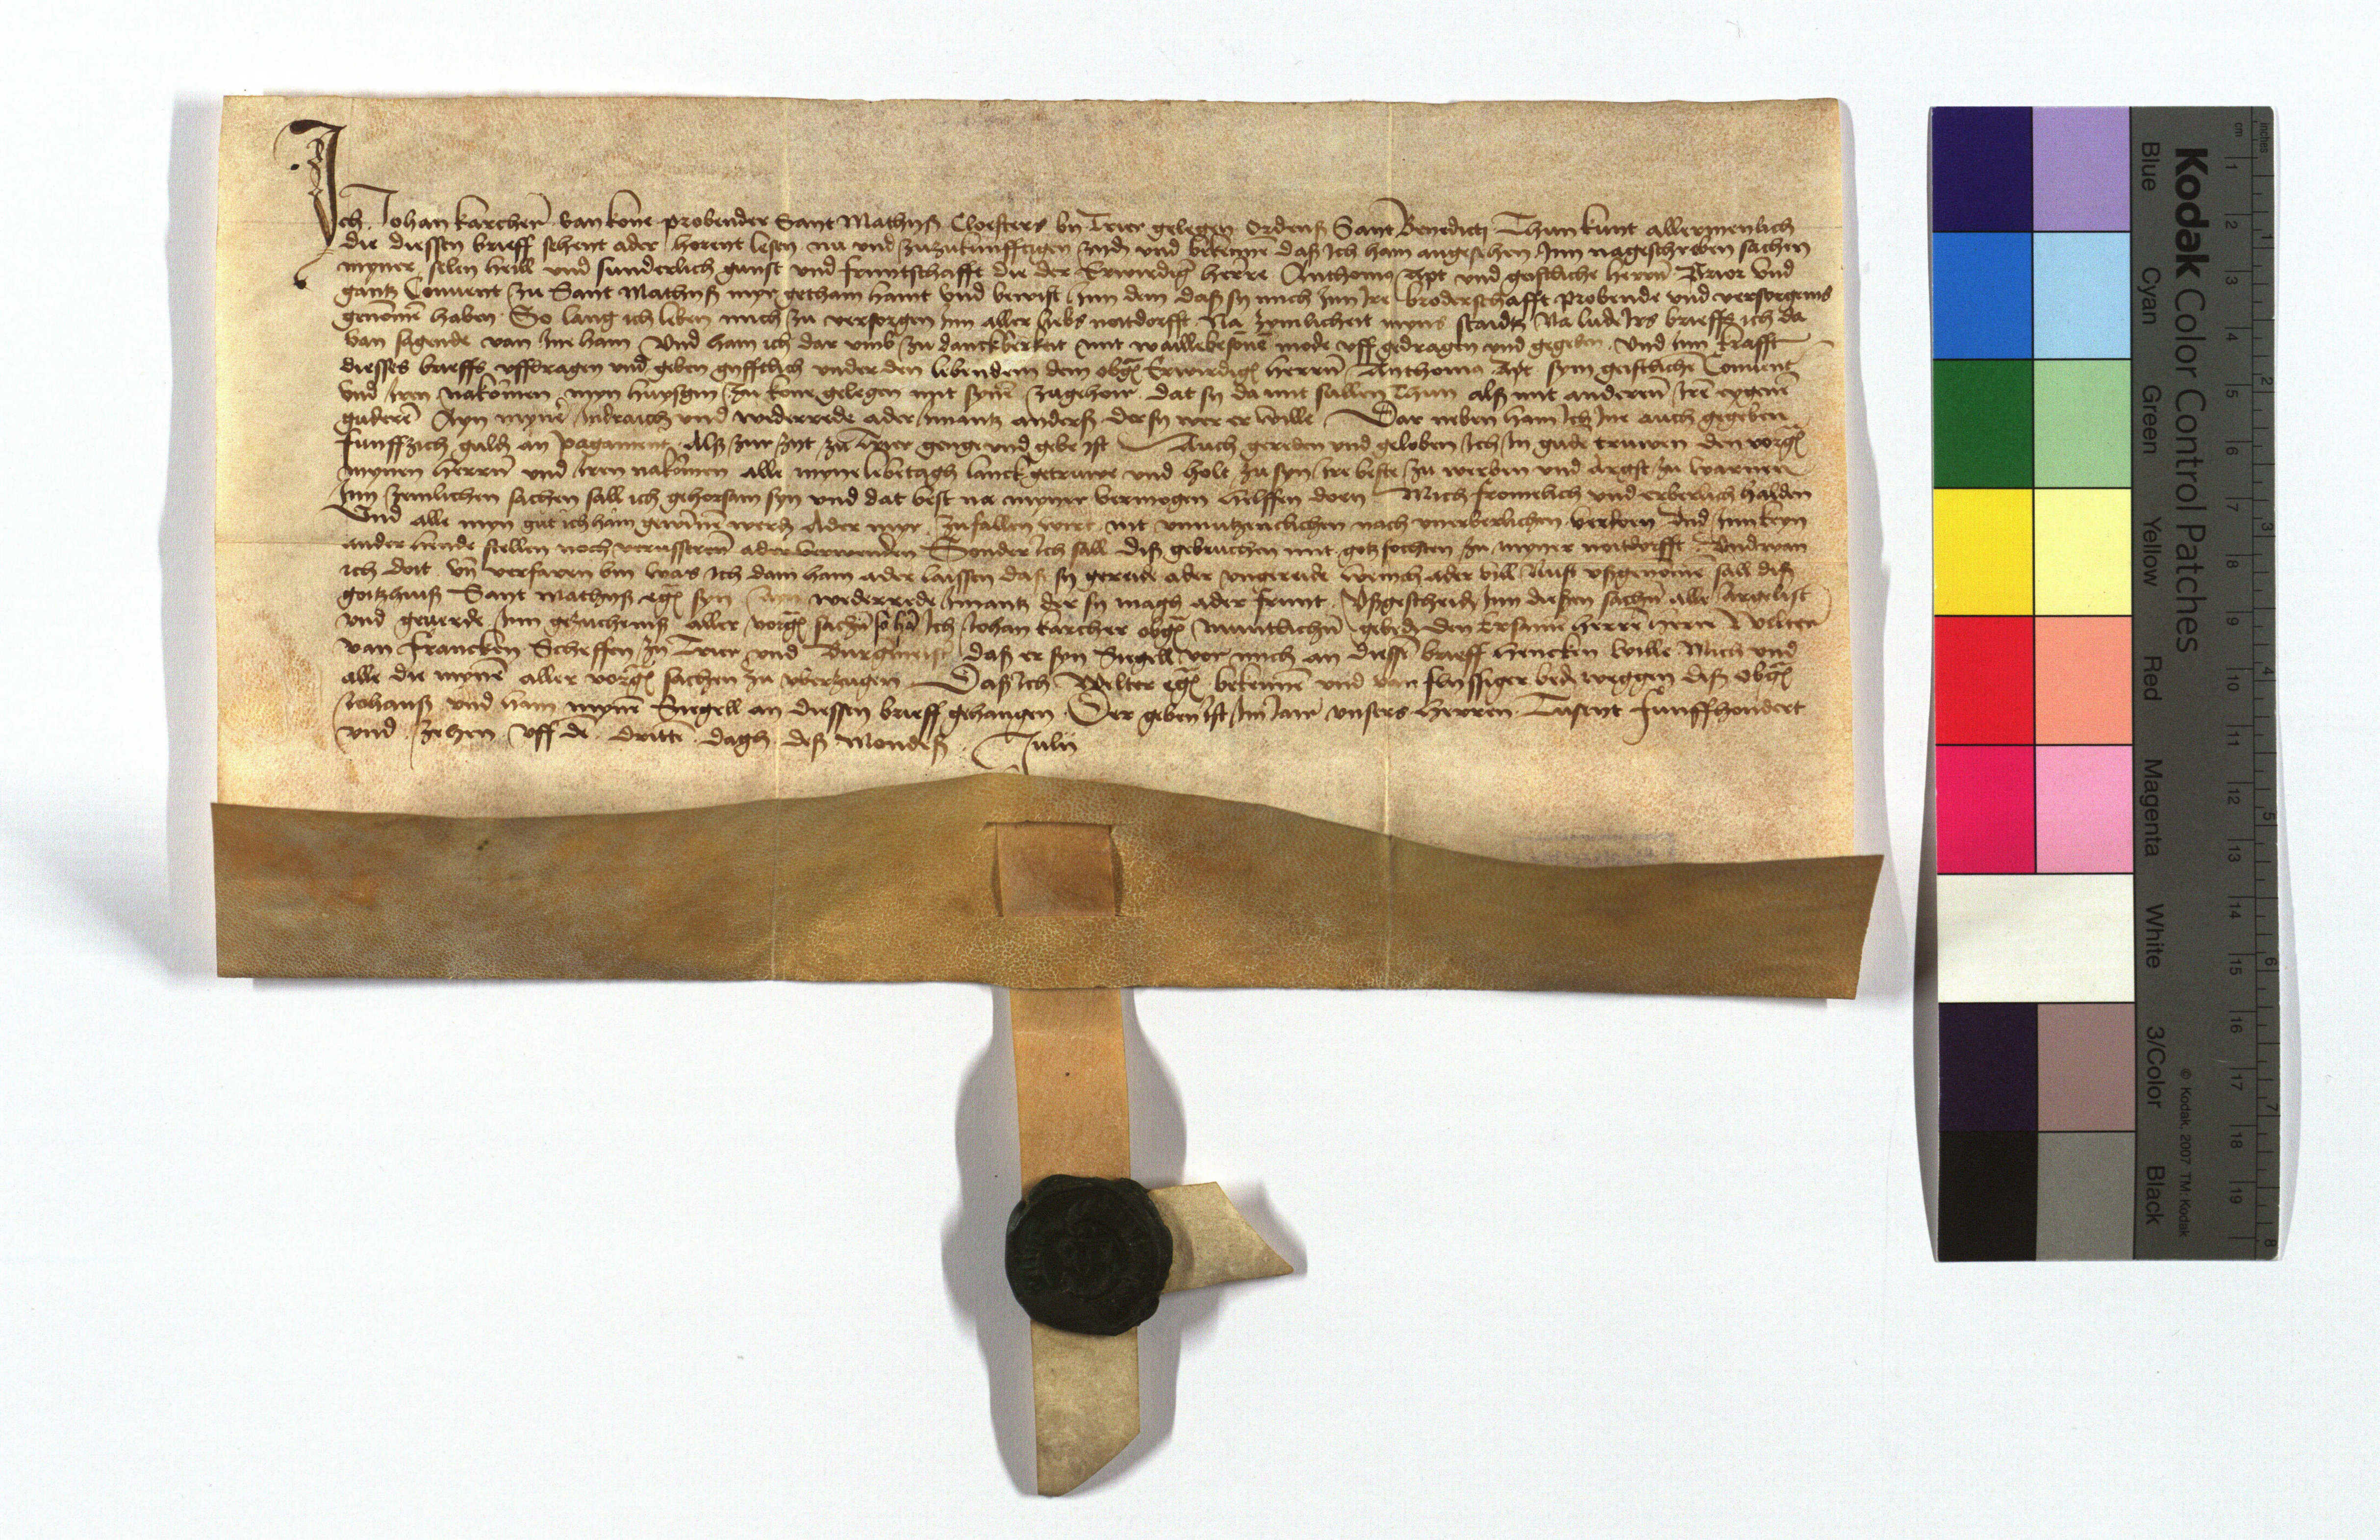 Ich Johan karchen van kone probender Sant Mathyß Cloesters by Trier gelegen Ordenß Sant Benedicti Thun kunt allermenlich
die diessen brieff sehent ader horent lesen nu und zuzukunfftigen zyden und bekenne daß Ich ham angesehen Inn nageschreben sachen
myner selen heill und sunderlich gunst und fruntschafft die der Erwirdig herre Anthoniꝰ Apt und geistliche herrn Prior Und
gantz Conuent zu Sant Mathyß myr gethann haint Und bewist Inn dem daß sy mich Inn Ire broderschafft probende und versorgenis
genomē haben So lang ich leben mich zu versorgen Inn aller liebs noitdorfft Na zymlicheit myns staidtz Na lude Irs brieffs ich da
van sagende van Ine ham Und ham ich dar umb zu danckberkeit mit waillebesonē mode uff gedragen und gegeben Und Inn krafft
diesses brieffs uffdragen und geben gyfftlich under den lebendem dem obg̃ Erwirdig̃ herrn Anthoniꝰ Apt sym geistliche Conuent
Und Iren nakomen myn huysgin zu kone gelegen mit synē zugehoir dat sy da mit sallen Thun alß mit anderen Irē eygenē
guderē Ayn mynē Indraich und wederrede ader Imantz anderß der sy wer er wille Dar neben ham Ich Ine auch gegeben
Funffzich guld an pagament Alß zur zyt zu Trier genge und gebe ist Auch gereden und geloben Ich In gude truwen den vorg̃
mynen herrn und Iren nakomen alle myne lebetagh lanck getruwe und holt zu syn Ire beste zu werben und argst zu warnen
Inn zemlichen sachen sall ich gehorsam syn und dat best na mynr vermogen helffen doen Mich fromelich und erberlich halden
Und alle myn gut ich ham gewinnē werd Ader myr zu fallen wirt nit unnutzenclichen nach unerberlichen verkoen Und Inn keyn
ander hende stellen noch verusseren ader verwenden Sonder Ich sall diß gebruchen mit gotz fochten zu myner noitdorfft Und wan
ich doit Uñ verfaren bin was Ich dann ham ader laissen daß sy gereide ader ungereide wenich ader vill Nust ußgenomē sall diß
gotzhuiß Sant Mathyß eg̃ syn Ayn wederrede Imantz der sy magh ader frunt Ußgescheid Inn dießen sachn alle Argelist
und geuerde Inn gezuchenis aller vorg̃ sachn so hā Ich Johan karcher obg̃ muntlichn gebed den Ersamē herrē hern Wolter
van francken Scheffen zu Trier und Burgmeister daß er syn Siegell vor mich an diessē brieff hencken wille Mich und
alle die mynē aller vorg̃ sachen zu uberzugen Daß Ich Wolter eg̃ bekennē und van flyssiger bed weggen diß obg̃
Johanß und ham mynē Siegell an diessen brieff gehangen Der geben ist Im Iair unsers herren Tusent funffhondert
und zehen Uff dē dritte dagh deß Mondeß Julij
Kodak Color Control Patches
Blue Cyan Green Yellow Red Magenta White 3/Color Black
© Kodak, 2007 TM: Kodak
cm 1 2 3 4 5 6 7 8 9 10 11 12 13 14 15 16 17 18 19
inches 1 2 3 4 5 6 7 8